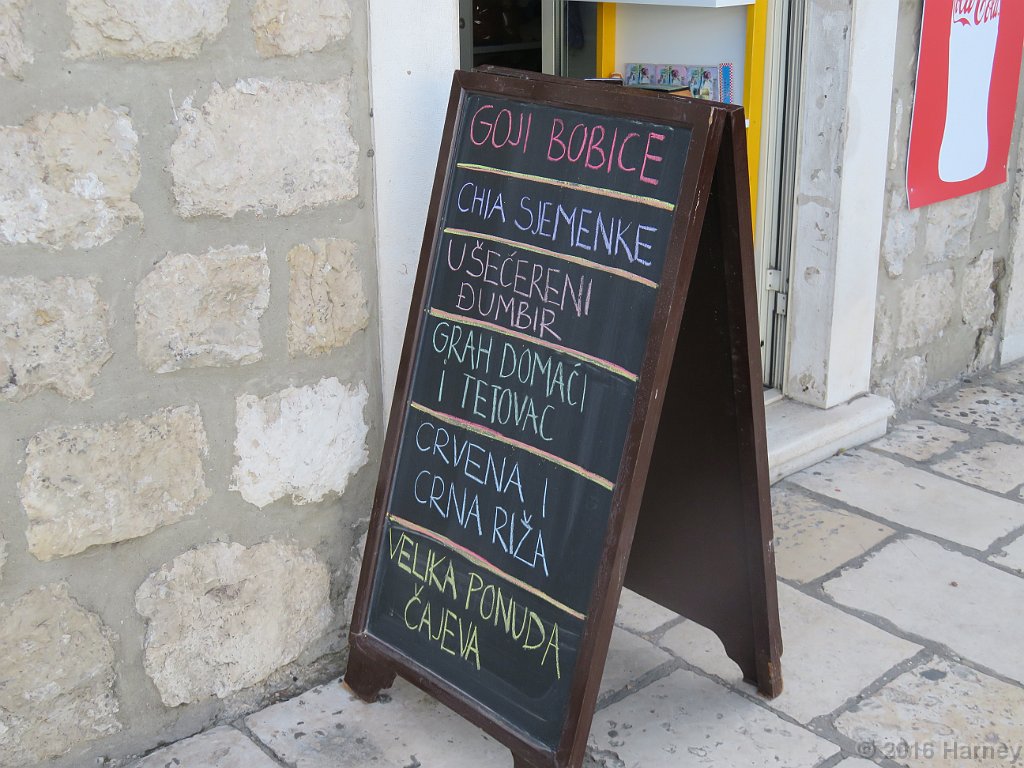 GOJI BOBICE
CHIA SJEMENKE
UŠEĆERENI
ĐUMBIR
GRAH DOMAĆI
I TETOVAC
CRVENA I
CRNA RIŽA
VELIKA PONUDA
ČAJEVA
Coca-Cola
© 2016 Harney